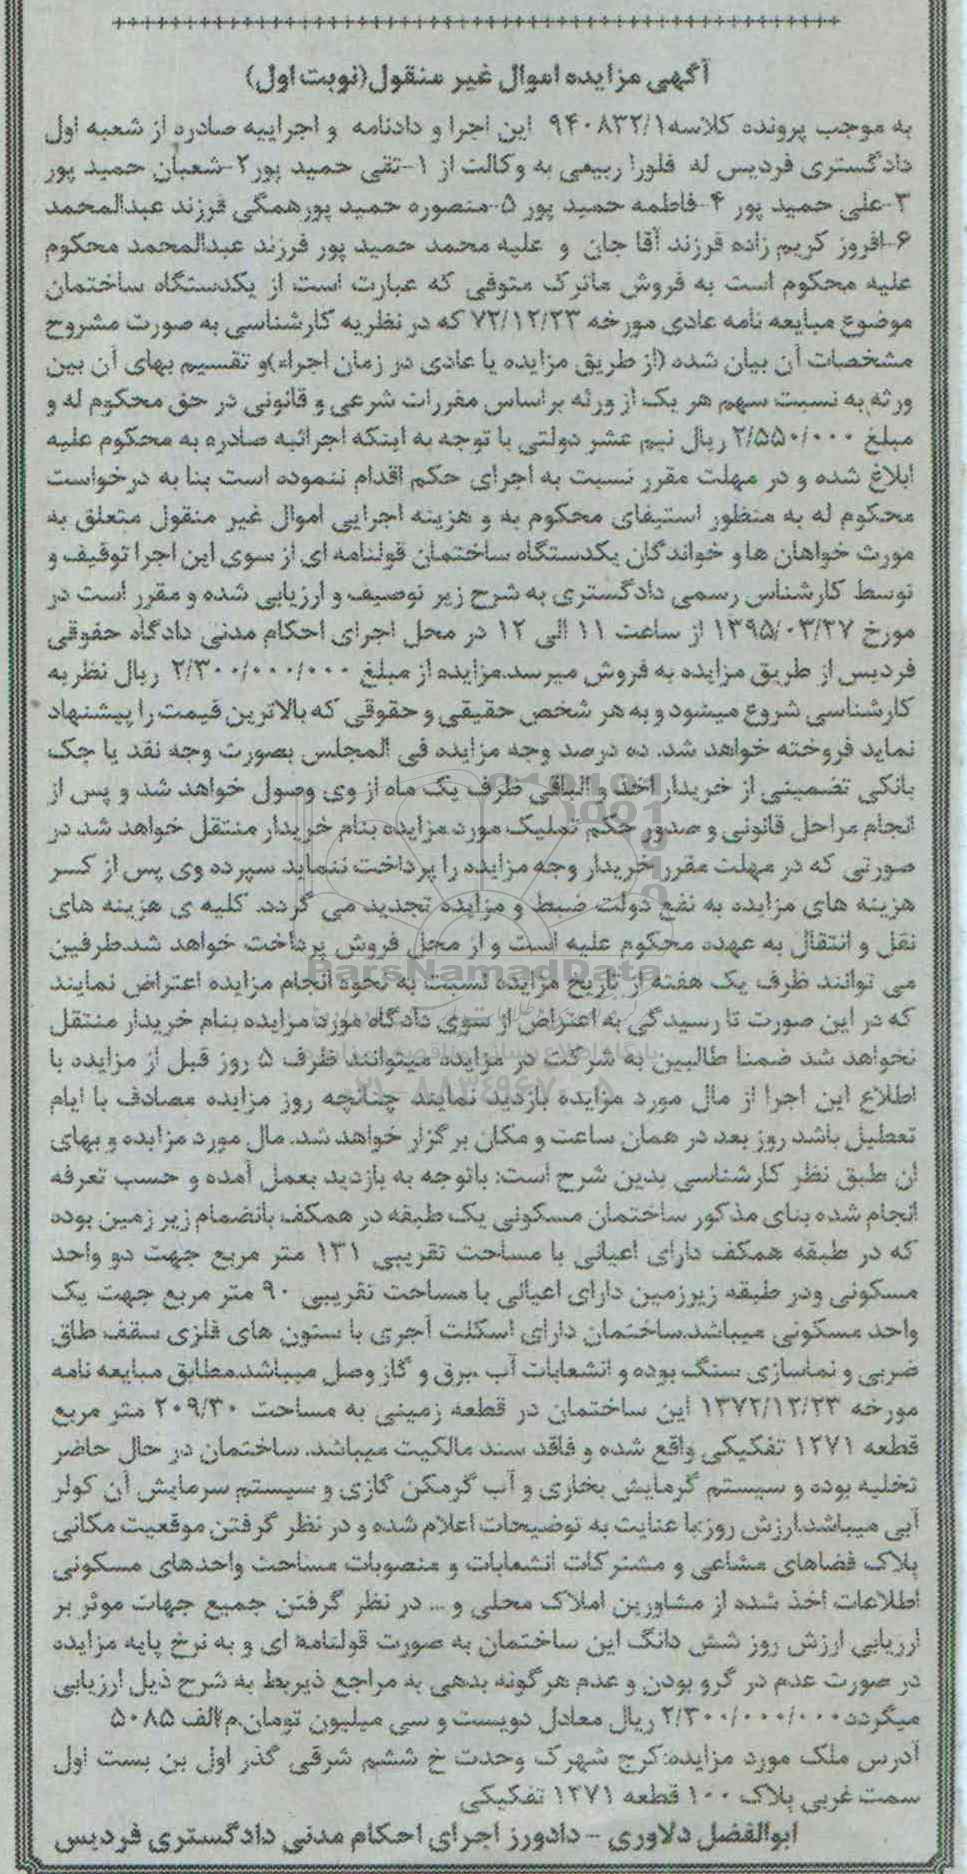 آگهی مزایده اموال غیر منقول(نوبت اول)
به موجب پرونده کلاسه۹۴۰۸۳۲/۱ این اجرا و دادنامه و اجراییه صادره از شعبه اول
دادگستری فردیس له فلورا ربیعی به وکالت از ۱-تقی حمید پور۲-شعبان حمید پور
۳-علی حمید پور ۴-فاطمه حمید پور ۵-منصوره حمید پورهمگی فرزند عبدالمحمد
۶-افروز کریم زاده فرزند آقا جان و علیه محمد حمید پور فرزند عبدالمحمد محکوم
علیه محکوم است به فروش ماترک متوفی که عبارت است از یکدستگاه ساختمان
موضوع مبایعه نامه عادی مورخه ۷۲/۱۲/۲۳ که در نظریه کارشناسی به صورت مشروح
مشخصات آن بیان شده (از طریق مزایده یا عادی در زمان اجراء)و تقسیم بهای آن بین
ورثه به نسبت سهم هر یک از ورثه براساس مقررات شرعی و قانونی در حق محکوم له و
مبلغ ۲/۵۵۰/۰۰۰ ریال نیم عشر دولتی با توجه به اینکه اجرائیه صادره به محکوم علیه
ابلاغ شده و در مهلت مقرر نسبت به اجرای حکم اقدام ننموده است بنا به درخواست
محکوم له به منظور استیفای محکوم به و هزینه اجرایی اموال غیر منقول متعلق به
مورث خواهان ها و خواندگان یکدستگاه ساختمان قولنامه ای از سوی این اجرا توقیف و
توسط کارشناس رسمی دادگستری به شرح زیر توصیف و ارزیابی شده و مقرر است در
مورخ ۱۳۹۵/۰۳/۲۷ از ساعت ۱۱ الی ۱۲ در محل اجرای احکام مدنی دادگاه حقوقی
فردیس از طریق مزایده به فروش میرسد.مزایده از مبلغ ۲/۳۰۰/۰۰۰/۰۰۰ ریال نظر به
کارشناسی شروع میشود و به هر شخص حقیقی و حقوقی که بالاترین قیمت را پیشنهاد
نماید فروخته خواهد شد. ده درصد وجه مزایده فی المجلس بصورت وجه نقد یا چک
بانکی تضمینی از خریدار اخذ و الباقی ظرف یک ماه از وی وصول خواهد شد و پس از
انجام مراحل قانونی و صدور حکم تملیک مورد مزایده بنام خریدار منتقل خواهد شد در
صورتی که در مهلت مقرر خریدار وجه مزایده را پرداخت ننماید سپرده وی پس از کسر
هزینه های مزایده به نفع دولت ضبط و مزایده تجدید می گردد. کلیه ی هزینه های
نقل و انتقال به عهده محکوم علیه است و از محل فروش پرداخت خواهد شد.طرفین
می توانند ظرف یک هفته از تاریخ مزایده نسبت به نحوه انجام مزایده اعتراض نمایند
که در این صورت تا رسیدگی به اعتراض از سوی دادگاه مورد مزایده بنام خریدار منتقل
نخواهد شد ضمنا طالبین به شرکت در مزایده میتوانند ظرف ۵ روز قبل از مزایده با
اطلاع این اجرا از مال مورد مزایده بازدید نمایند چنانچه روز مزایده مصادف با ایام
تعطیل باشد روز بعد در همان ساعت و مکان برگزار خواهد شد. مال مورد مزایده و بهای
آن طبق نظر کارشناسی بدین شرح است: باتوجه به بازدید بعمل آمده و حسب تعرفه
انجام شده بنای مذکور ساختمان مسکونی یک طبقه در همکف بانضمام زیر زمین بوده
که در طبقه همکف دارای اعیانی با مساحت تقریبی ۱۳۱ متر مربع جهت دو واحد
مسکونی ودر طبقه زیرزمین دارای اعیانی با مساحت تقریبی ۹۰ متر مربع جهت یک
واحد مسکونی میباشد.ساختمان دارای اسکلت آجری با ستون های فلزی سقف طاق
ضربی و نماسازی سنگ بوده و انشعابات آب ،برق و گاز وصل میباشد.مطابق مبایعه نامه
مورخه ۱۳۷۲/۱۲/۲۳ این ساختمان در قطعه زمینی به مساحت ۲۰۹/۳۰ متر مربع
قطعه ۱۲۷۱ تفکیکی واقع شده و فاقد سند مالکیت میباشد. ساختمان در حال حاضر
تخلیه بوده و سیستم گرمایش بخاری و آب گرمکن گازی و سیستم سرمایش آن کولر
آبی میباشد.ارزش روز:با عنایت به توضیحات اعلام شده و در نظر گرفتن موقعیت مکانی
پلاک فضاهای مشاعی و مشترکات انشعابات و منصوبات مساحت واحدهای مسکونی
اطلاعات اخذ شده از مشاورین املاک محلی و ... در نظر گرفتن جمیع جهات موثر بر
ارزیابی ارزش روز شش دانگ این ساختمان به صورت قولنامه ای و به نرخ پایه مزایده
در صورت عدم در گرو بودن و عدم هرگونه بدهی به مراجع ذیربط به شرح ذیل ارزیابی
میگردد۲/۳۰۰/۰۰۰/۰۰۰ ریال معادل دویست و سی میلیون تومان.م/الف ۵۰۸۵
آدرس ملک مورد مزایده:کرج شهرک وحدت خ ششم شرقی گذر اول بن بست اول
سمت غربی پلاک ۱۰۰ قطعه ۱۲۷۱ تفکیکی
ابوالفضل دلاوری - دادورز اجرای احکام مدنی دادگستری فردیس
ParsNamadData
۰۲۱-۸۸۳۴۹۶۷۰-۵